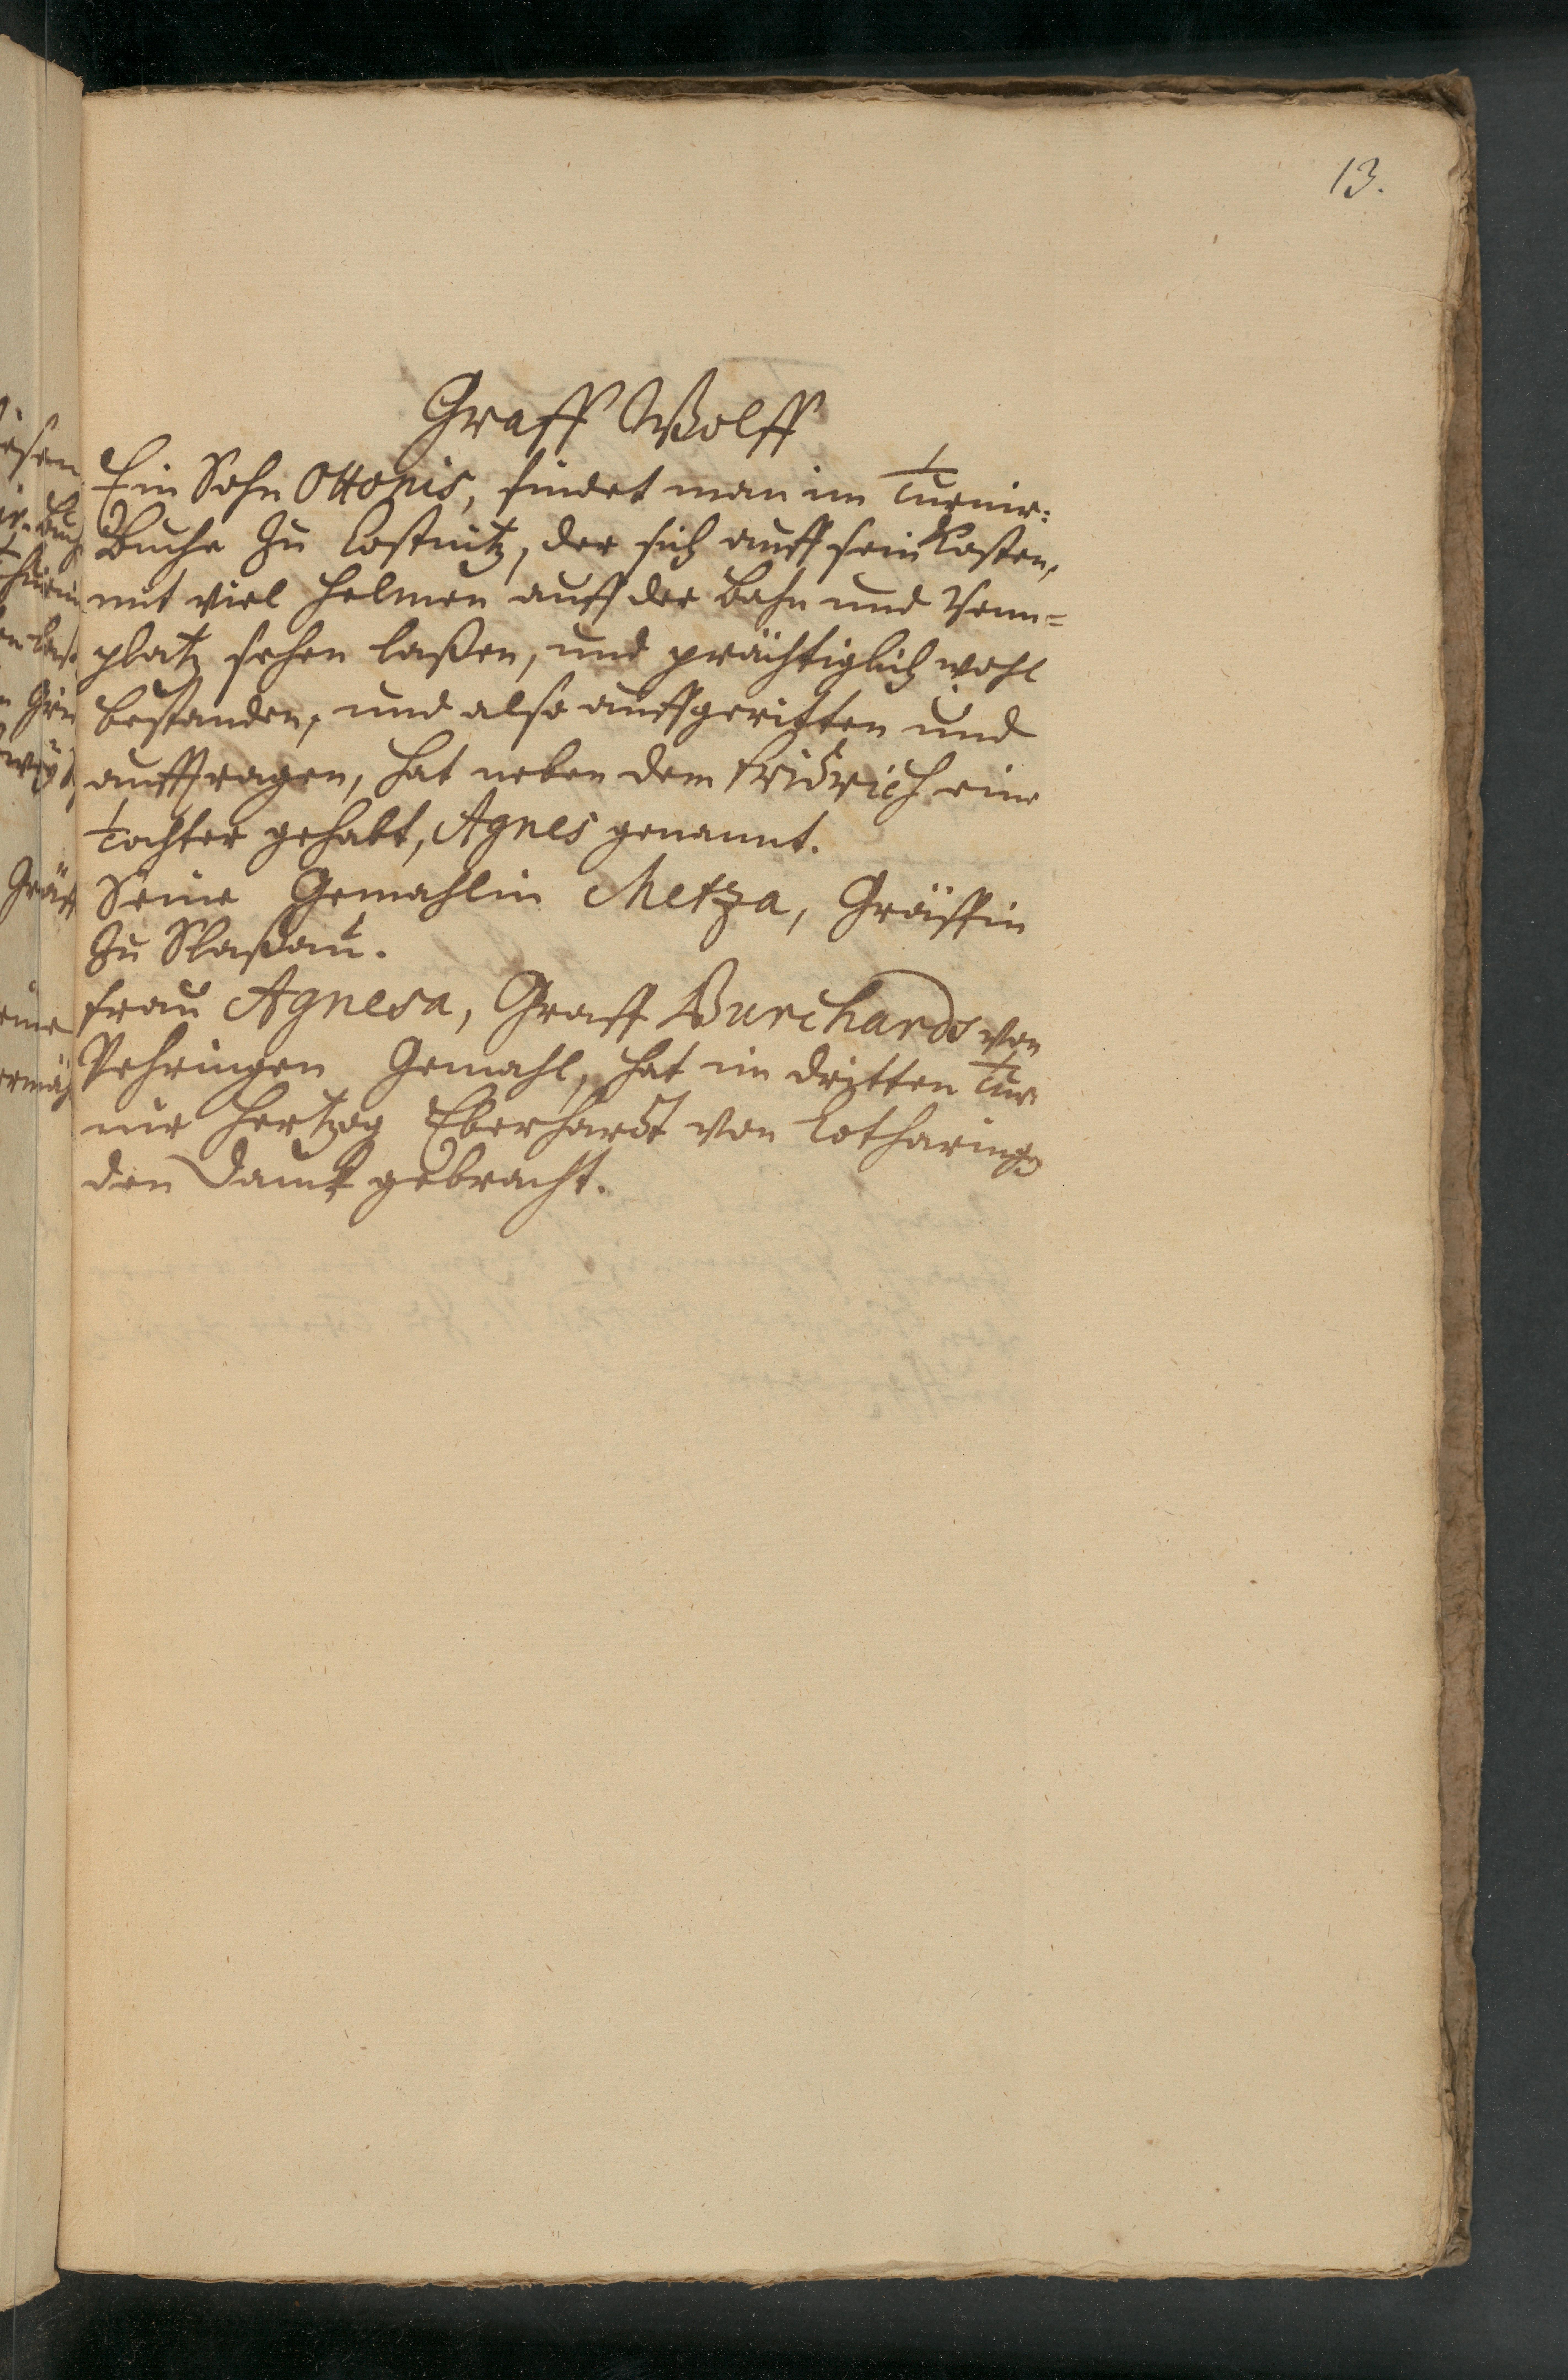 13.
Graff Wolff
Ein Sohn Ottonis, findet man im Turnir:
Buche zu Costnitz, der sich auff sein Kosten,
mit viel Helmen auff der Bahn und Renn=
platz sehen laßen, und prächtiglich wohl
bestanden, und also auffgeritten und
aufftragen, hat neben dem Fridrich eine
Tochter gehabt, Agnes genannt.
Seine Gemahlin Metza, Gräffin
zu Naßau.
Frau Agnesa, Graff Burchards von
Gemahl, hat im dritten Tur
nir Hertzog Eberhardt von Lotharing
den Danck gebracht.